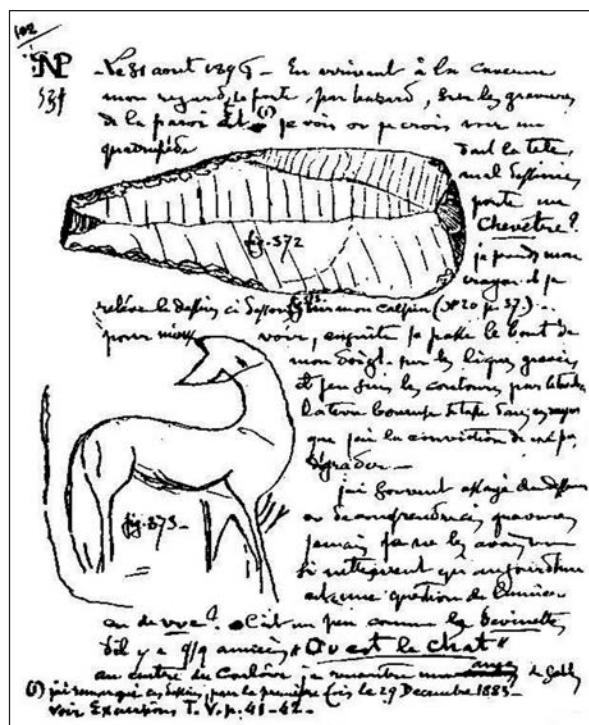 102
NP
531
Le 31 aout 1896 - En arrivant à la caverne
mon regard, se porte, par hazard, sur les gravures
de la paroi Et (1) je vois ou je crois voir un
quadrupède
dont la tete,
mal dessinée,
porte un
Chevêtre?
je prends mon
crayon et je
fig. 372
relève le dessin ci dessous sur mon calepin (N° 20 p. 37)
pour mieux voir, ensuite je passe le bout de
mon doigt sur les lignes gravées
et j'en suis les contours
que j'ai la conviction de ne pas
dégrader -
j'ai souvent essayé de
ou de comprendre ces gravures
jamais je ne les avais vues
si nettement qu'aujourd'hui
est-ce une question de lumière
fig. 373 -
ou de vue? C'est un peu comme les devinettes
d'il y a q/q années "Ou est le chat"
au centre du couloir je rencontre
(1) j'ai remarqué ces dessins, pour la première fois le 29 Decembre 1883 -
voir Excursions T. V. p. 41-42 -